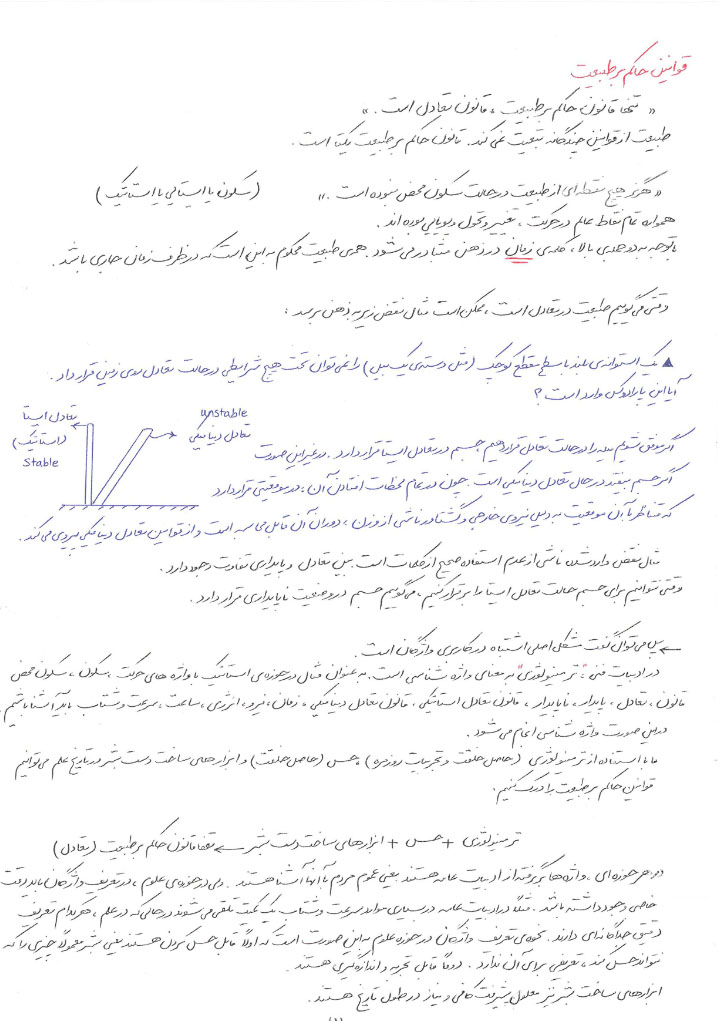 قوانین حاکم بر طبیعت
« تنها قانون حاکم بر طبیعت، قانون تعادل است. »
طبیعت از قوانین چندگانه تبعیت نمی کند. قانون حاکم بر طبیعت یکتا است.
« هرگز هیچ نقطه ای از طبیعت در حالت سکون محض نبوده است. » (سکون یا ایستایی یا استاتیک)
همواره تمام نقاط عالم در حرکت، تغییر و تحول و پویایی بوده اند.
با توجه به دو جمله ی بالا، کلمه ی زمان در ذهن متبادر می شود. همه ی طبیعت محکوم به این است که در ظرف زمان جاری باشد.
وقتی می گوییم طبیعت در تعادل است، ممکن است مثال نقض زیر به ذهن برسد:
▲ یک استوانه ی بلند با سطح مقطع کوچک (مثل دسته ی یک بیل) را نمی توان تحت هیچ شرایطی در حالت تعادل روی زمین قرار داد.
آیا این پارادوکس وارد است؟
تعادل ایستا
(استاتیک)
Stable
unstable
تعادل دینامیکی
اگر موفق شویم میله را در حالت تعادل قرار دهیم جسم در تعادل ایستا قرار دارد. در غیر این صورت
اگر جسم بیفتد در حال تعادل دینامیکی است. چون در تمام لحظات افتادن آن، در موقعیتی قرار دارد
که متناظر با آن موقعیت به دلیل نیروی خارجی و گشتاور ناشی از وزن، دوران آن قابل محاسبه است و از قوانین تعادل دینامیکی پیروی می کند.
مثال نقض وارد شده ناشی از عدم استفاده صحیح از کلمات است. بین تعادل و پایداری تفاوت وجود دارد.
وقتی نتوانیم برای جسم حالت تعادل ایستا را برقرار کنیم، می گوییم جسم در وضعیت ناپایداری قرار دارد.
← پس می توان گفت مشکل اصلی اشتباه در کاربری واژگان است.
در ادبیات فنی، "ترمینولوژی" به معنای واژه شناسی است. به عنوان مثال در حوزه ی استاتیک با واژه های حرکت، سکون، سکون محض
قانون، تعادل، پایدار، ناپایدار، قانون تعادل استاتیکی، قانون تعادل دینامیکی، زمان، نیرو، انرژی، ساعت، سرعت و شتاب باید آشنا باشیم.
در این صورت واژه شناسی انجام می شود.
ما با استفاده از ترمینولوژی (حاصل خلقت و تجربیات روزمره)، حس (حاصل خلقت) و ابزارهای ساخت دست بشر در تاریخ علم می توانیم
قوانین حاکم بر طبیعت را درک کنیم.
ترمینولوژی + حس + ابزارهای ساخت دست بشر ← تنها قانون حاکم بر طبیعت (تعادل)
در هر حوزه ای، واژه ها برگرفته از ادبیات عامه هستند یعنی عموم مردم با آنها آشنا هستند. ولی در حوزه ی علوم، در تعریف واژگان باید دقت
خاصی وجود داشته باشد. مثلاً در ادبیات عامه در بسیاری موارد سرعت و شتاب یک کمیت تلقی می شوند در حالی که در علم، هر کدام تعریف
دقیق جداگانه ای دارند. نحوه ی تعریف واژگان در حوزه علوم به این صورت است که اولاً قابل حس کردن هستند یعنی بشر معمولاً چیزی را که
نتواند حس کند، تعریفی برای آن ندارد. دوماً قابل تجربه و اندازه گیری هستند.
ابزارهای ساخت بشر نیز معلول پیشرفت کافی و نیاز در طول تاریخ هستند.
(۱)